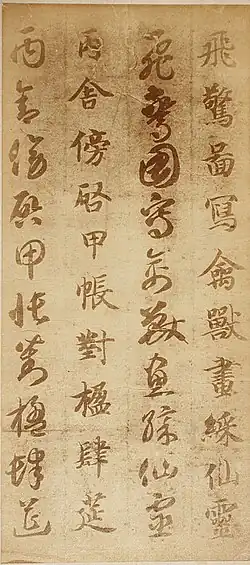 飛驚啚寫禽獸畫綵仙靈
飛驚圖寫禽獸畫綵仙靈
丙舍傍啓甲帳對楹肆筵
丙舍傍啓甲帳對楹肆筵